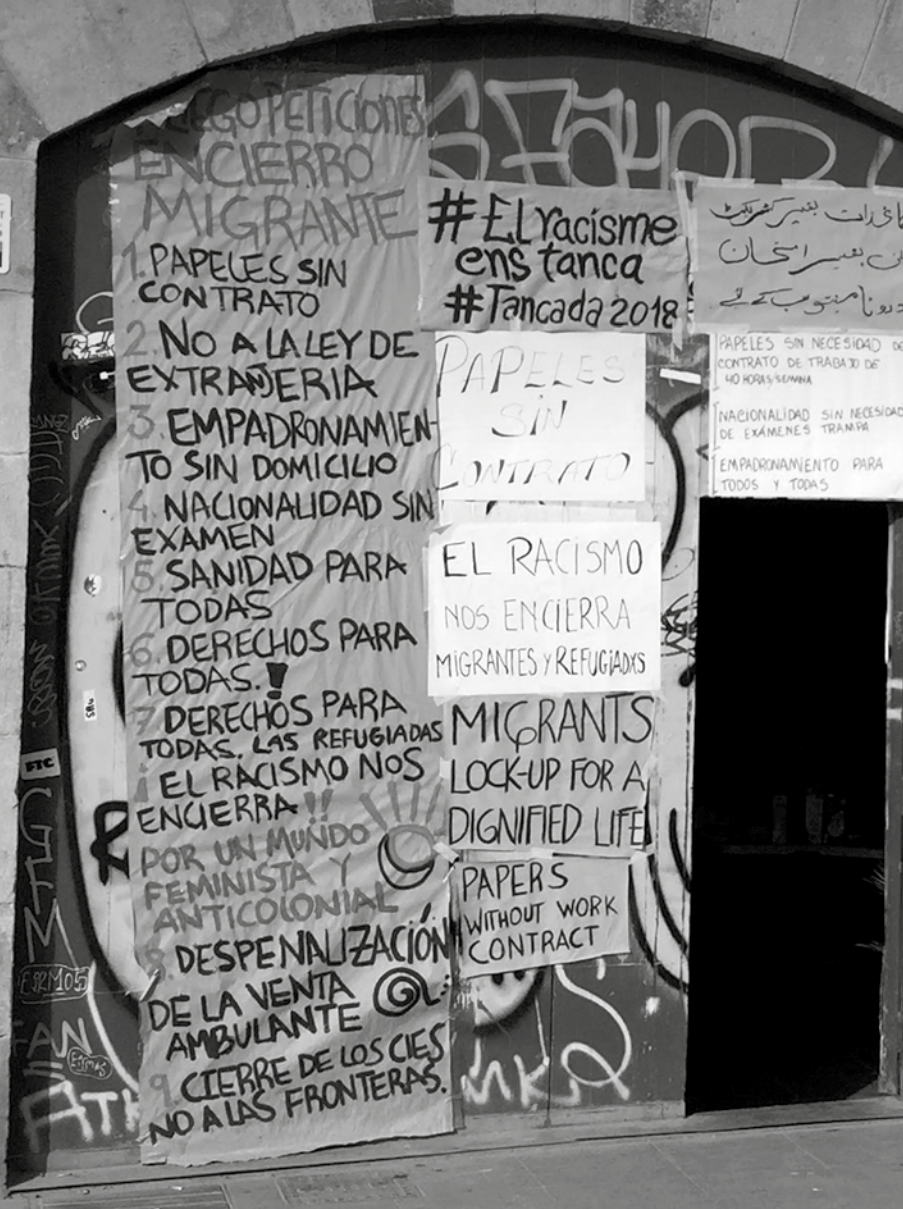 PLIEGO PETICIONES
ENCIERRO
MIGRANTE
1. PAPELES SIN
CONTRATO
2. NO A LA LEY DE
EXTRANJERIA
3. EMPADRONAMIEN-
TO SIN DOMICILIO
4. NACIONALIDAD SIN
EXAMEN
5. SANIDAD PARA
TODAS
6. DERECHOS PARA
TODAS.!
7. DERECHOS PARA
TODAS. LAS REFUGIADAS
¡ EL RACISMO NOS
ENCIERRA!!
POR UN MUNDO
FEMINISTA Y
ANTICOLONIAL
8. DESPENALIZACIÓN
DE LA VENTA
AMBULANTE
9 CIERRE DE LOS CIES
NO A LAS FRONTERAS.
#El racisme
ens tanca
#Tancada 2018
PAPELES
SIN
CONTRATO
EL RACISMO
NOS ENCIERRA
MIGRANTES Y REFUGIADXS
MIGRANTS
LOCK-UP FOR A
DIGNIFIED LIFE
PAPERS
WITHOUT WORK
CONTRACT
بغیر کنٹریکٹ
بغیر امتحان
سب کے لئے
PAPELES SIN NECESIDAD DE
CONTRATO DE TRABAJO DE
40 HORAS/SEMANA
NACIONALIDAD SIN NECESIDAD
DE EXÁMENES TRAMPA
EMPADRONAMIENTO PARA
TODOS Y TODAS
FTC